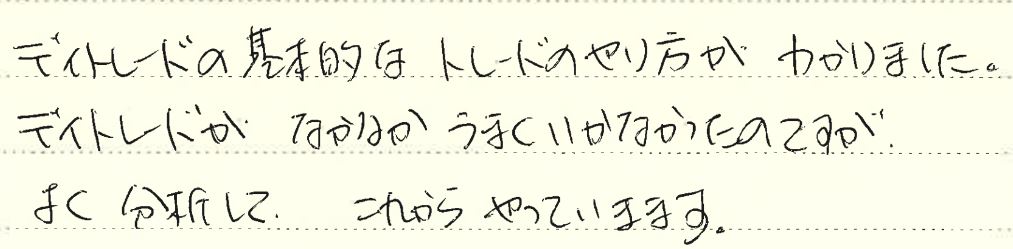 デイトレードの基本的なトレードのやり方が わかりました。
デイトレードが なかなか うまくいかなかったのですが
よく 分析して これから やっていきます。